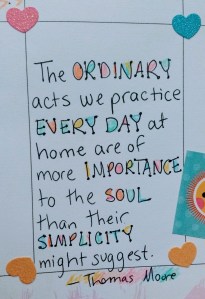 The ORDINARY
acts we practice
EVERY DAY at
home are of
more IMPORTANCE
to the SOUL
than their
SIMPLICITY
might suggest.
Thomas Moore